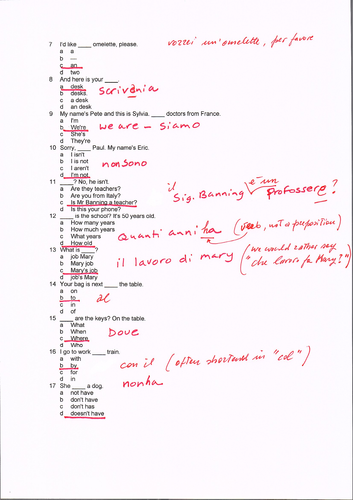 7 I'd like ____ omelette, please. vorrei un'omelette, per favore
a a
b —
c an
d two
8 And here is your ____.
a desk
b desks. scrivania
c a desk
d an desk
9 My name's Pete and this is Sylvia. ____ doctors from France.
a I'm
b We're we are – siamo
c She's
d They're
10 Sorry, ____ Paul. My name's Eric.
a I isn't
b I is not
c I aren't non sono
d I'm not.
11 ____? No, he isn't. il è un
a Are they teachers?
b Are you from Italy? Sig. Banning professore?
c Is Mr Banning a teacher?
d Is this your phone?
12 ____ is the school? It's 50 years old.
a How many years
b How much years
c What years Quanti anni ha (verb, not a preposition)
d How old
13 What is ____? (we would rather say
a job Mary
b Mary job il lavoro di mary "che lavoro fa Mary?")
c Mary's job
d job's Mary
14 Your bag is next ____ the table.
a on
b to al
c in
d of
15 ____ are the keys? On the table.
a What
b When
c Where. Dove
d Who
16 I go to work ____ train.
a with
b by. con il (often shortened in "col")
c for
d in
17 She ____ a dog. non ha
a not have
b don't have
c don't has
d doesn't have